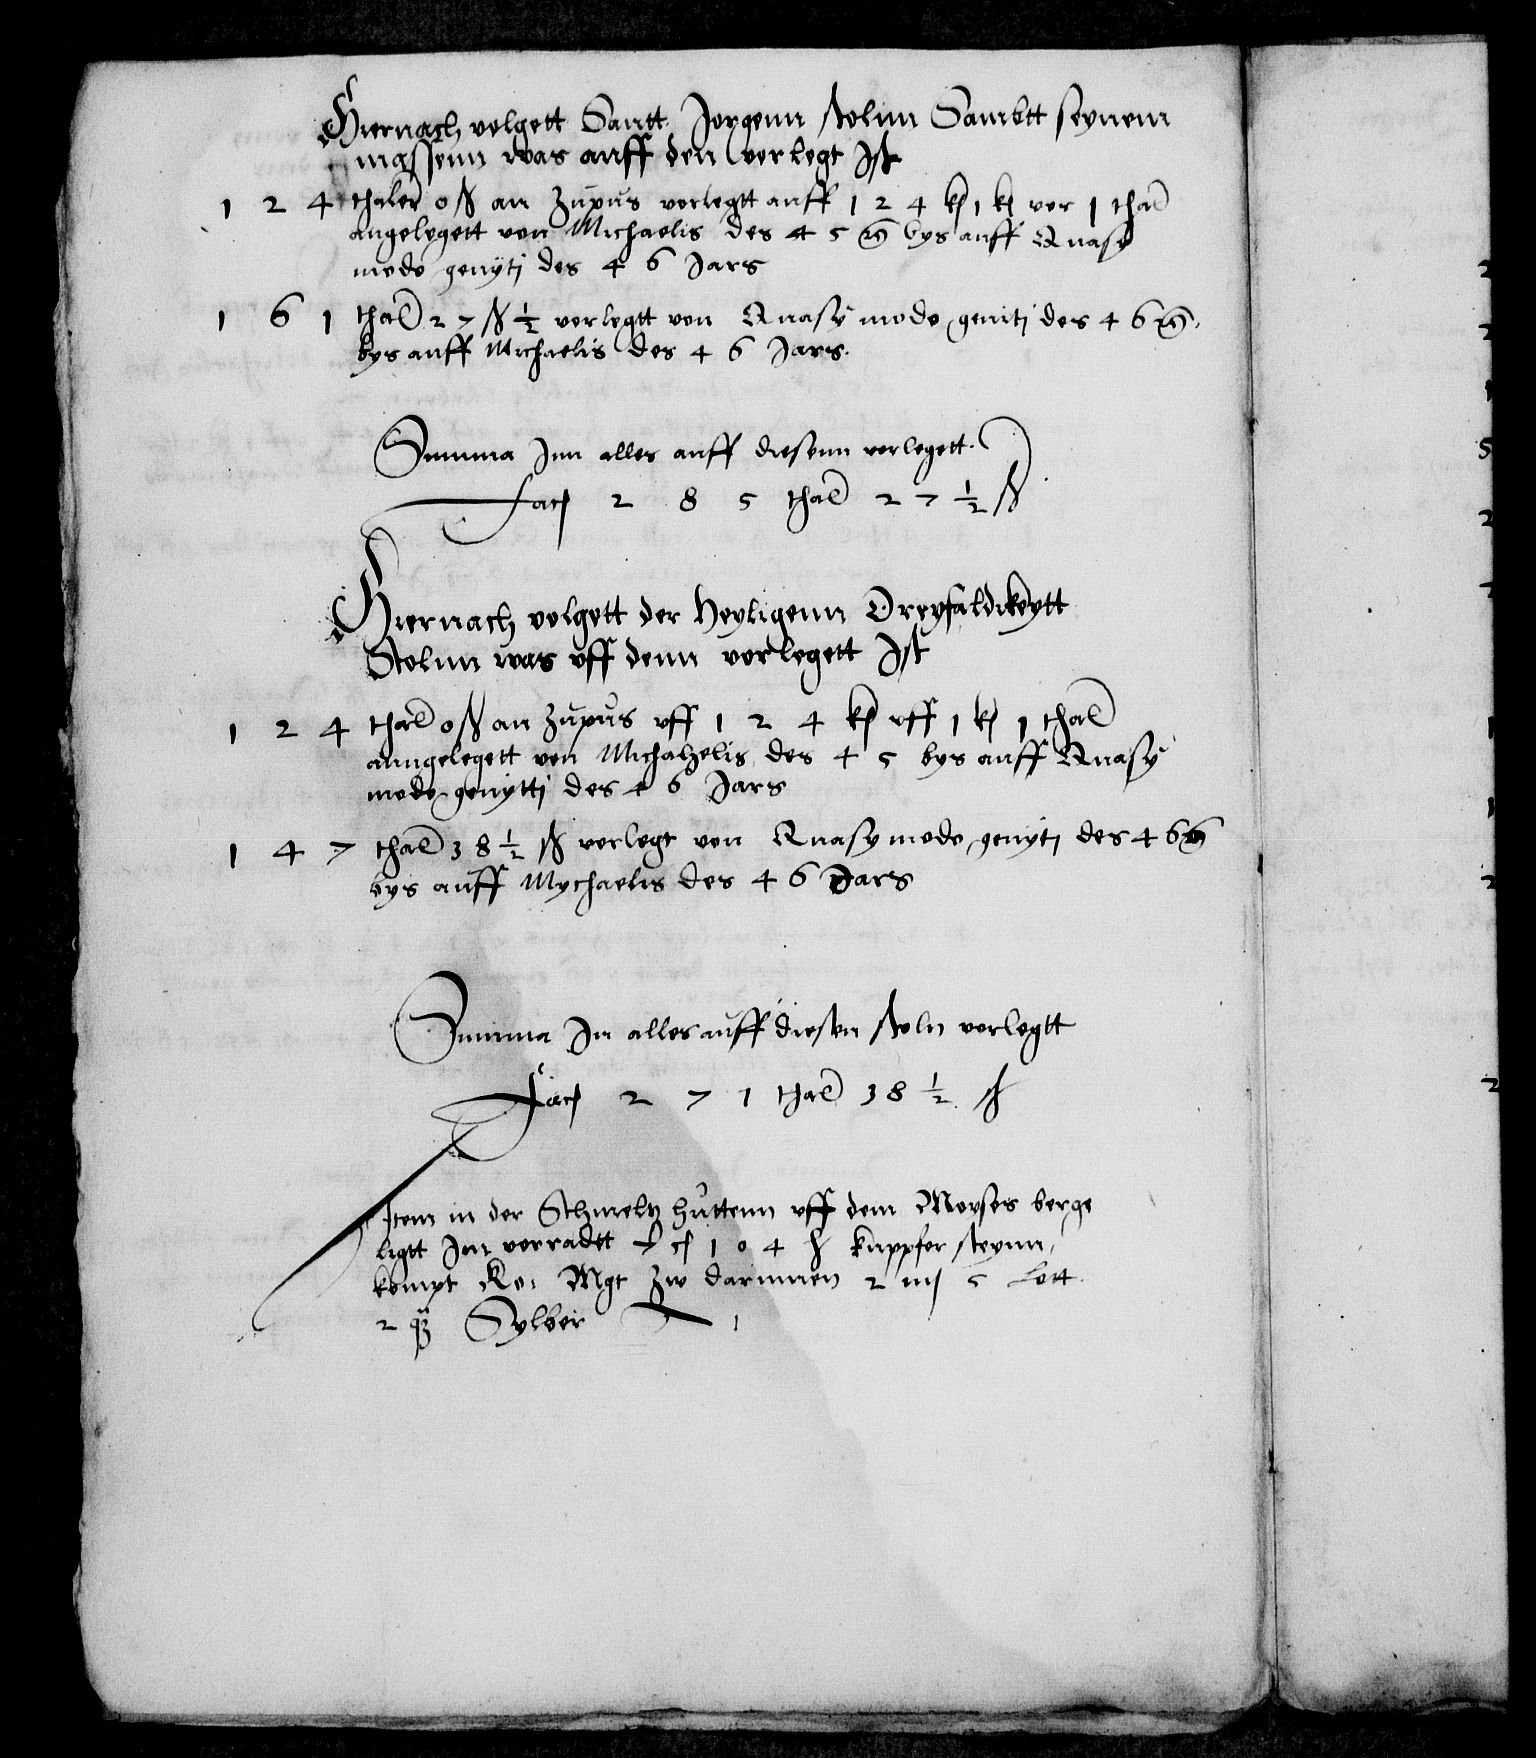 Hiernach volgett Santt Jorgenn stolnn Sambtt seynenn
massenn was auff den vorlegt Jst
1 2 4 thaler 0 ß an zupus vorlegtt auff 1 2 4 k 1 k vor 1 thal
angelegett von Michaelis des 4 5 bys auff Quasy
modo genyti des 4 6 Jars
1 6 1 thal 2 7 ß ½ vorlegtt von Quasy modo geniti des 4 6
bys auff Michaelis des 4 6 Jars.
Summa Jnn alles auff diesenn vorlegett.
fac 2 8 5 thal 2 7 ½ ß
Hiernach volgett der Heyligenn Dreyfaldikeytt
Stolnn was vff denn vorlegett Jst
1 2 4 thal 0 ß an zupus vff 1 2 4 k vff 1 k 1 thal
anngelegett von Michahelis des 4 5 bys auff Quasy
modo genytti des 4 6 Jars
1 4 7 thal 3 8 ½ ß vorlegt von Quasy modo genyti des 4 6
bys auff Mychaelis des 4 6 Jars
Summa Jn alles auff diesen stoln vorlegtt
Fac 2 7 1 thal 3 8 ½ ß
Item in der Schmeltz huttenn vff dem Moyses berge
ligtt Jm vorradtt 1 0 4 kuppfer steynn,
kompt Ko: Mgt zw darinnen 2 m 5 Lott
2 q Sylber
2
2
1
5
2
1
1
2
2